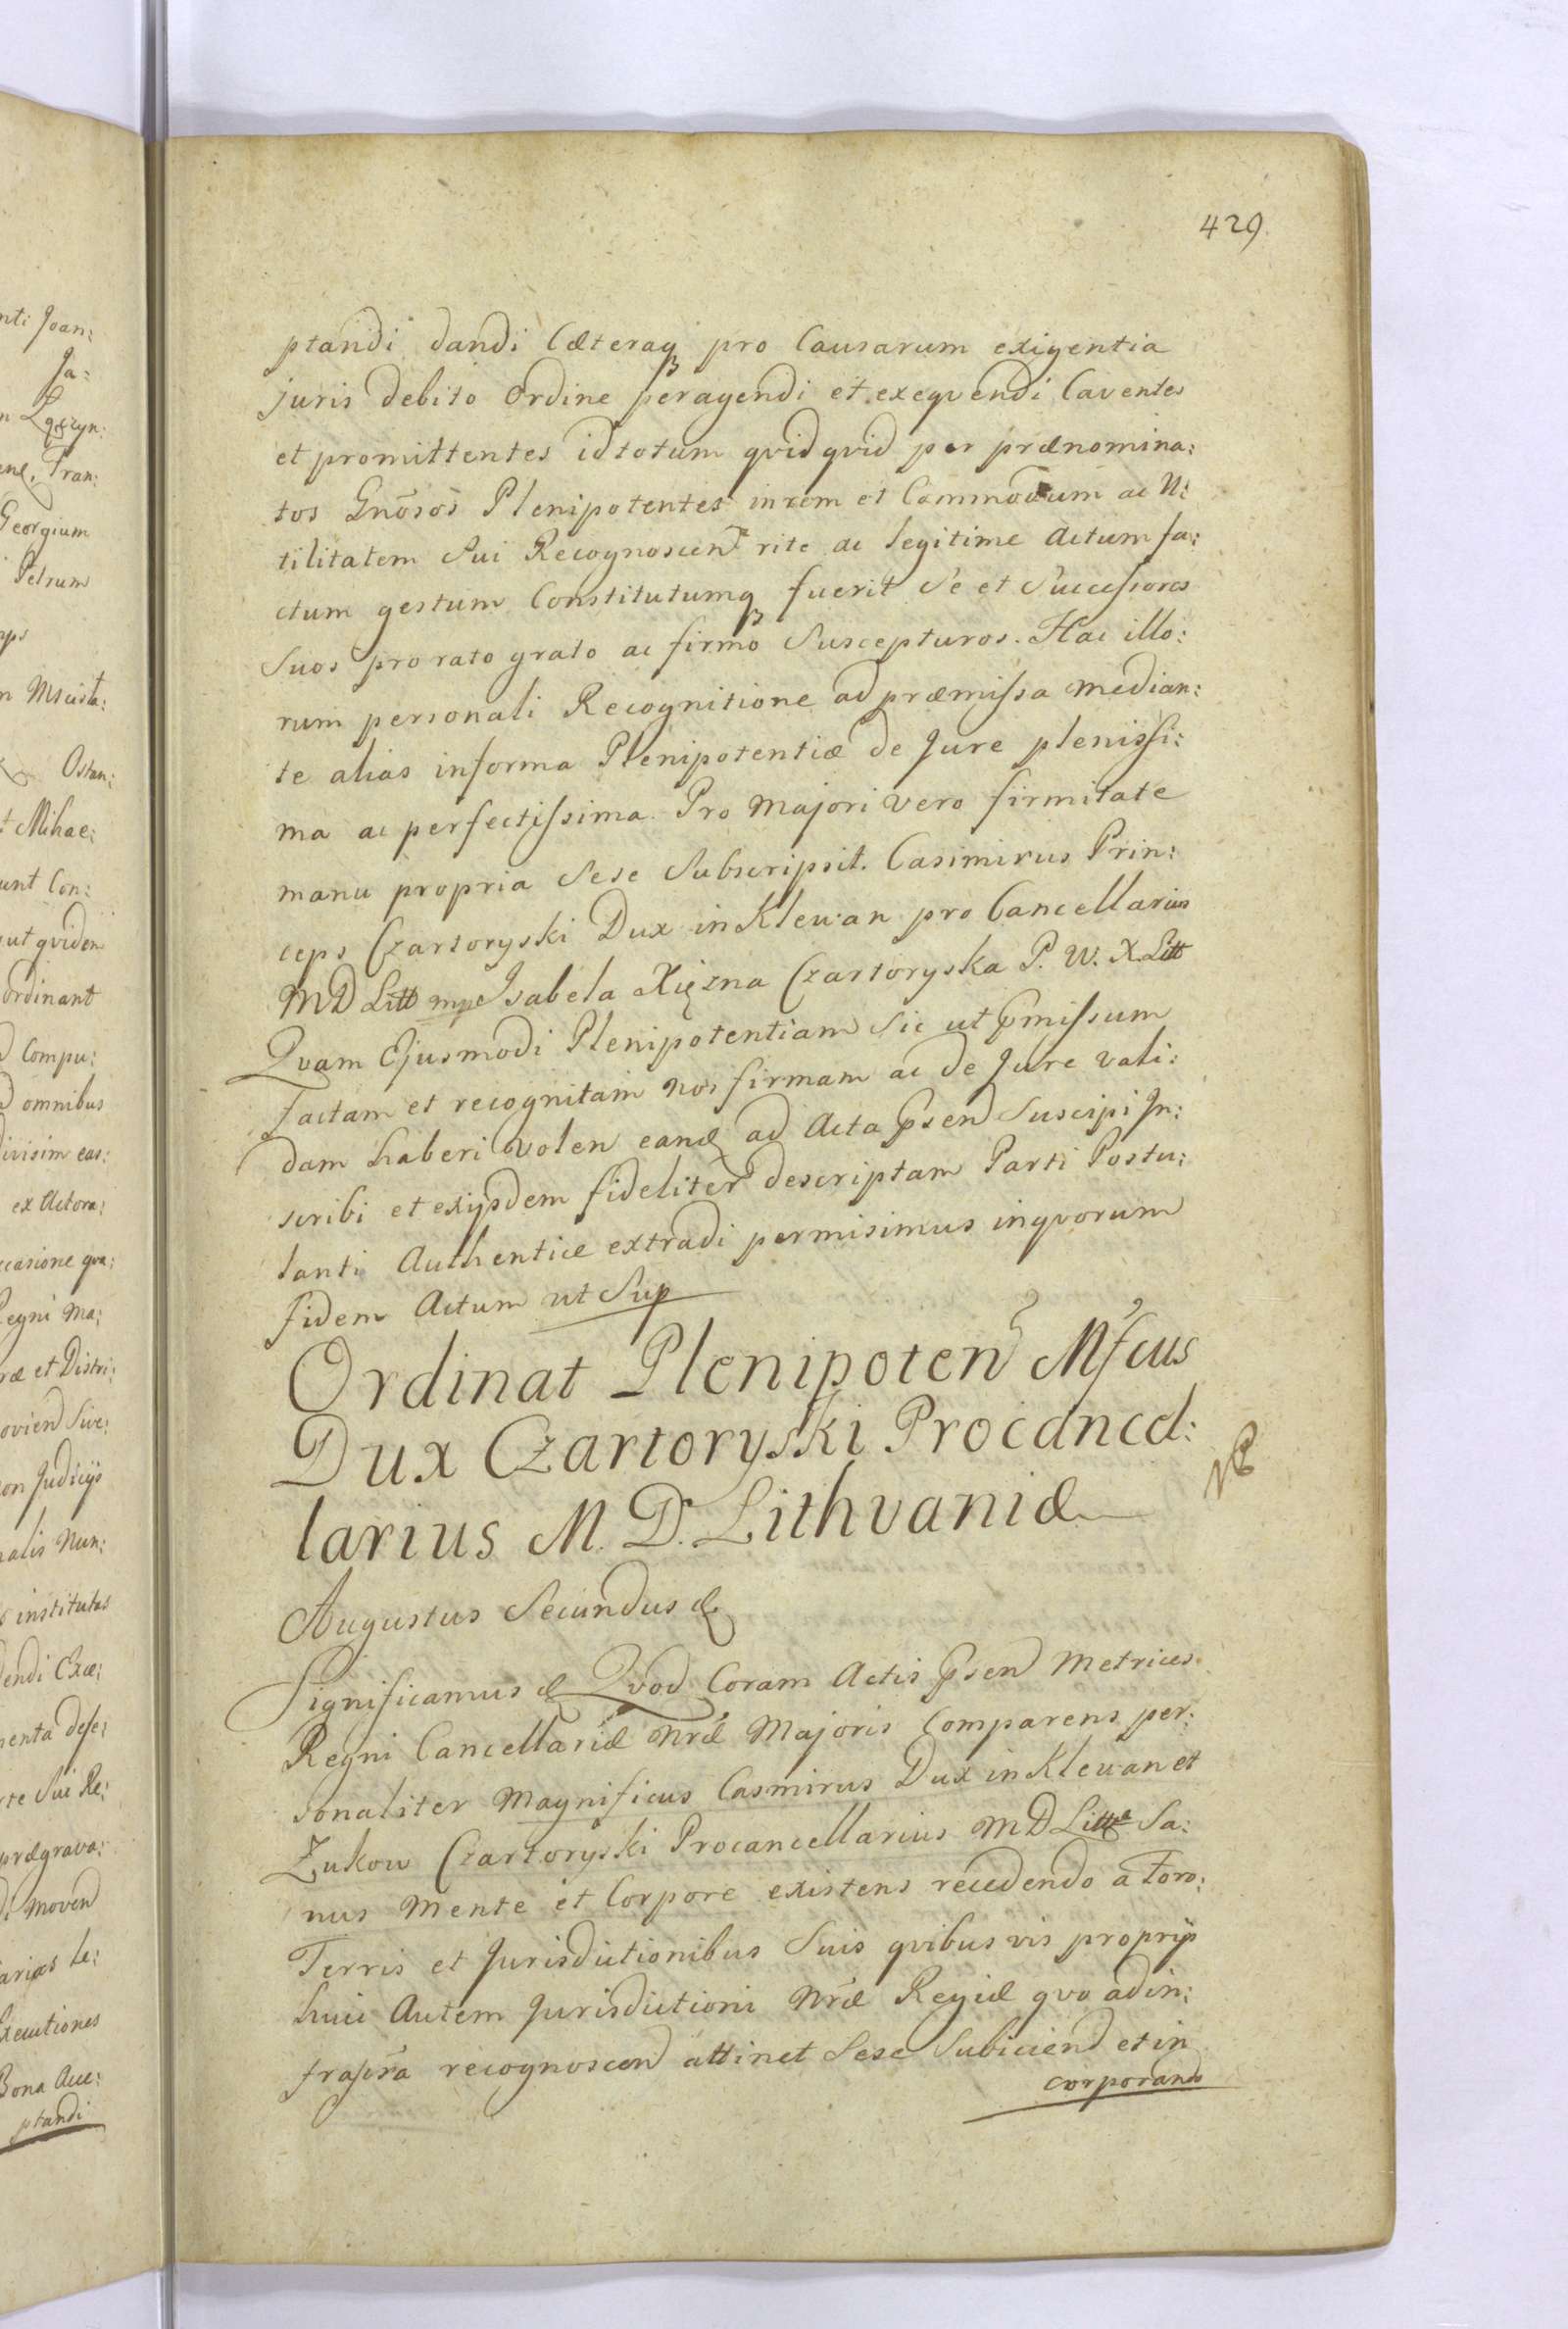 429
ptandi dandi Cæteraq pro Causarum exigentia
juris debito Ordine peragendi et exeqvendi Caventes
et promittentes id totum qvidqvid per prænomina:
tos Gnosos Plenipotentes in rem et Commodum ac U:
tilitatem Sui Recognoscen rite ac legitime Actum fa:
ctum gestum Constitutumq fuerit Se et Successores
Suos pro rato grato ac firmo Suscepturos. Hac illo:
rum personali Recognitione ad præmissa median:
te alias in forma Plenipotentiæ de Jure plenissi:
ma ac perfectissima. Pro Majori vero firmitate
manu propria Sese Subscripsit. Casimirus Prin:
ceps Czartoryski Dux in Klewan pro Cancellarius
MD Litt mp Isabela Xiężna Czartoryska P. W. X. Litt
Qvam Ejusmodi Plenipotentiam Sic ut pmissum
Factam et recognitam nos firmam ac de Jure vali:
dam haberi volen eand ad Acta psen Suscipi In:
scribi et exijsdem fideliter descriptam Parti Postu:
lanti Authentice extradi permisimus inqvorum
fidem Actum ut Sup
Ordinat Plenipoten Mfcus
Dux Czartoryski Procancel:
larius M. D. Lithvaniæ
NB
Augustus Secundus &
Significamus & Qvod Coram Actis psen Metrices
Regni Cancellariæ Nræ Majoris Comparens per:
sonaliter Magnificus Casmirus Dux in Klewan et
Zukow Czartoryski Procancellarius MD Littæ Sa:
nus Mente et Corpore existens recedendo a Foro:
Terris et Jurisdictionibus Suis qvibusvis proprijs
huic Autem Jurisdictioni Nræ Regiæ qvo ad in:
frascra recognoscen attinet Sese Subiciend et in
corporando
nti Joan:
Ja:
Fran:
Georgium
Petrum
Ostan:
t Mihae:
unt Con:
ut qvidem
ordinant
d Compu:
d omnibus
divisim eas:
ex Actora:
ccasione qva:
Regni Ma:
ræ et Distri:
ovien Sive:
on Judicijs
nalis Nun:
institutas
dendi Exce:
menta defe:
rte Sui Re:
prægrava:
di moven
Executiones
Bona Acce:
ptandi